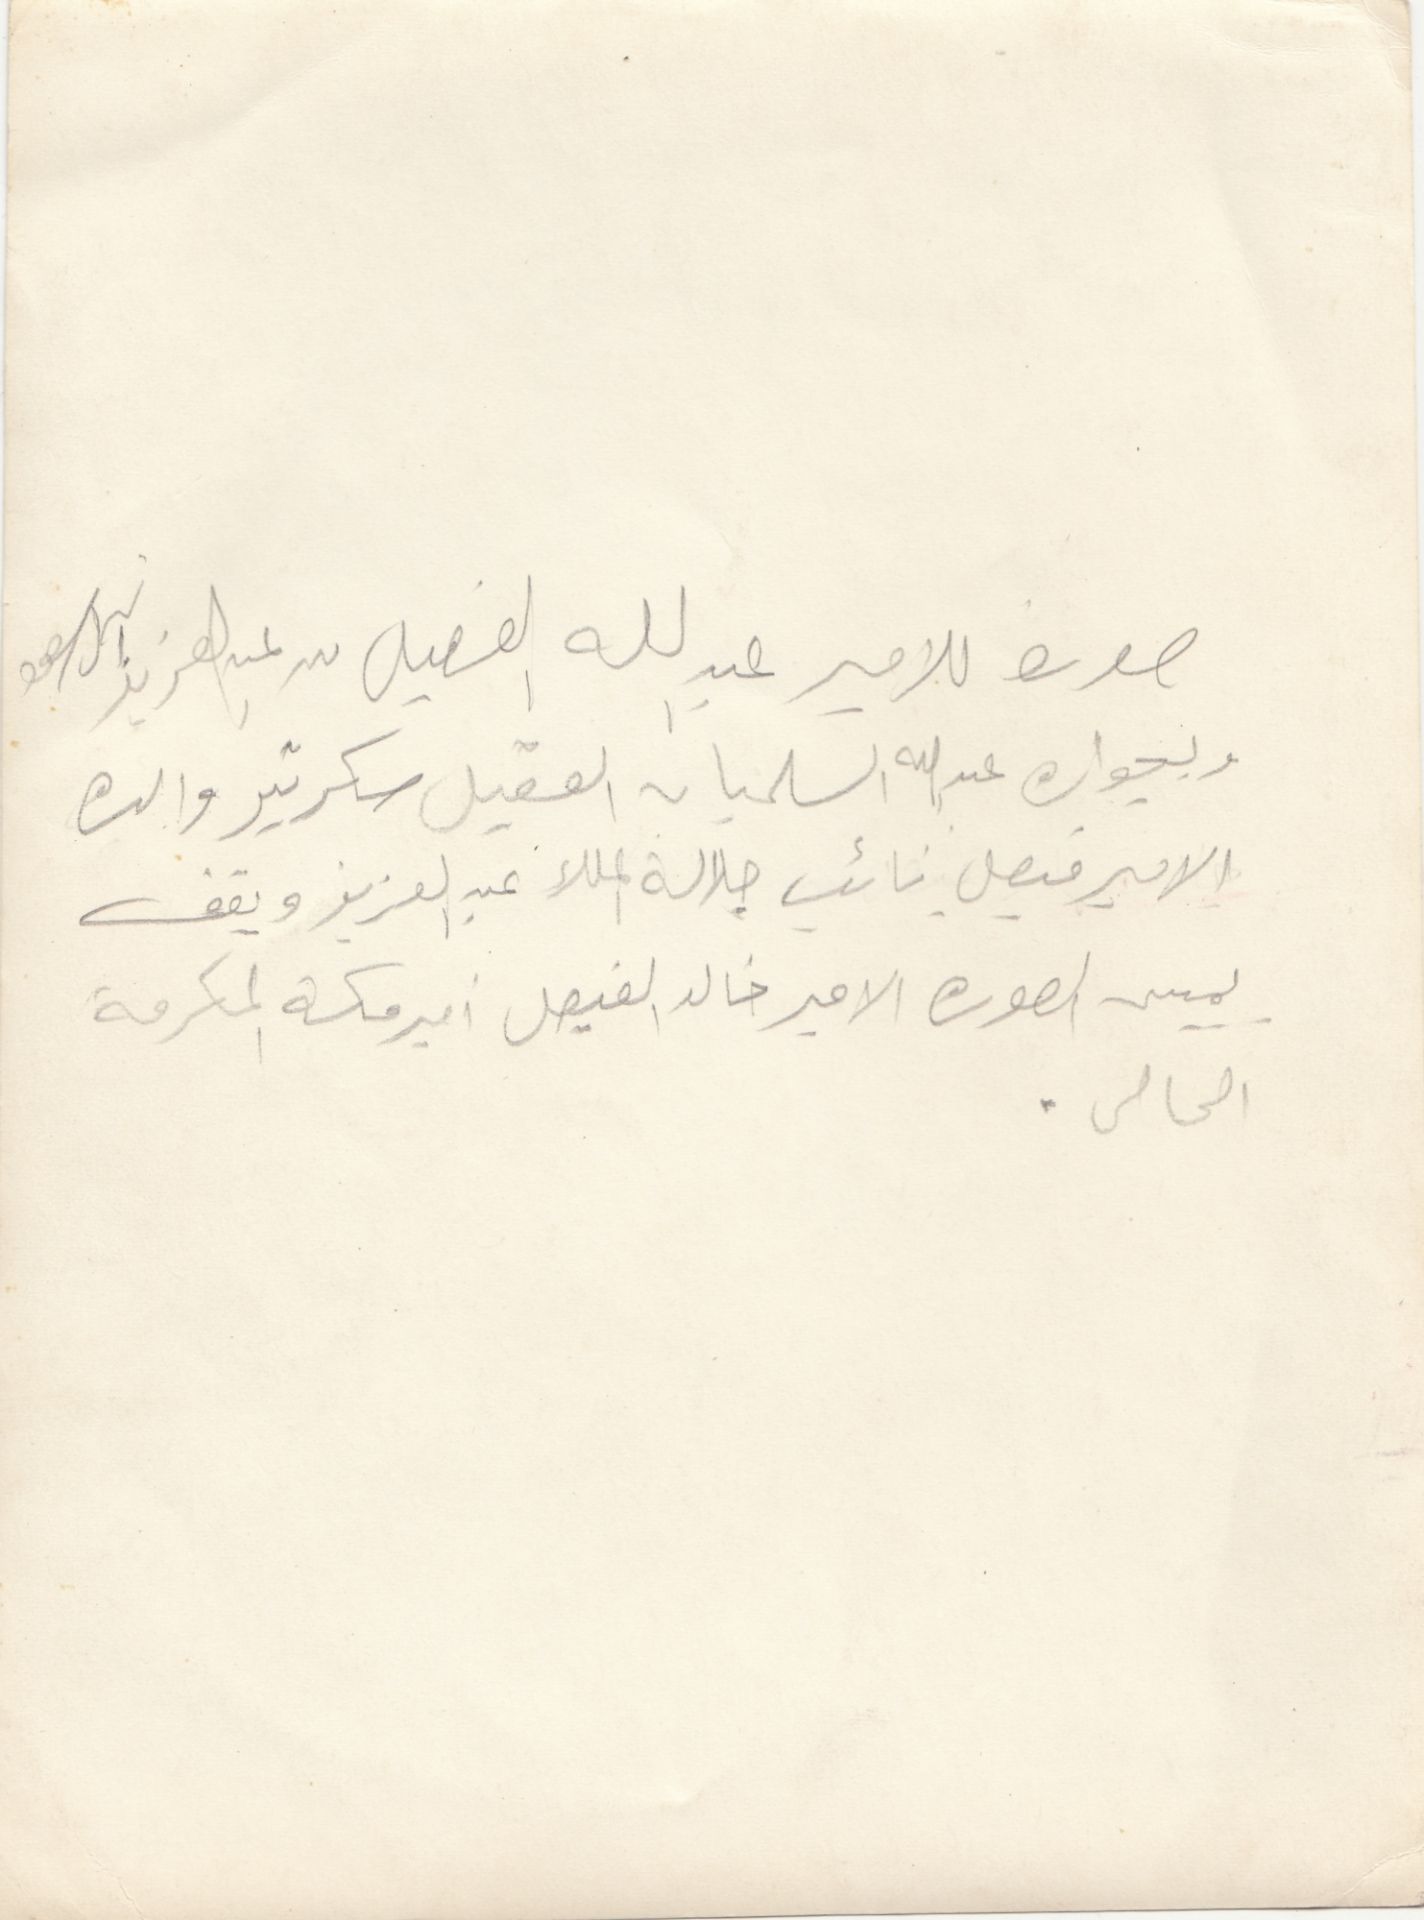 صورة للامير عبد الله الفيصل بن عبد العزيز السعود
وبجواره عبد الله السليمان العقيل سكرتير والده
الامير فيصل نائب جلالة الملك عبد العزيز ويقف
يمين الصوره الامير خالد الفيصل أمير مكة المكرمة
الحالى .